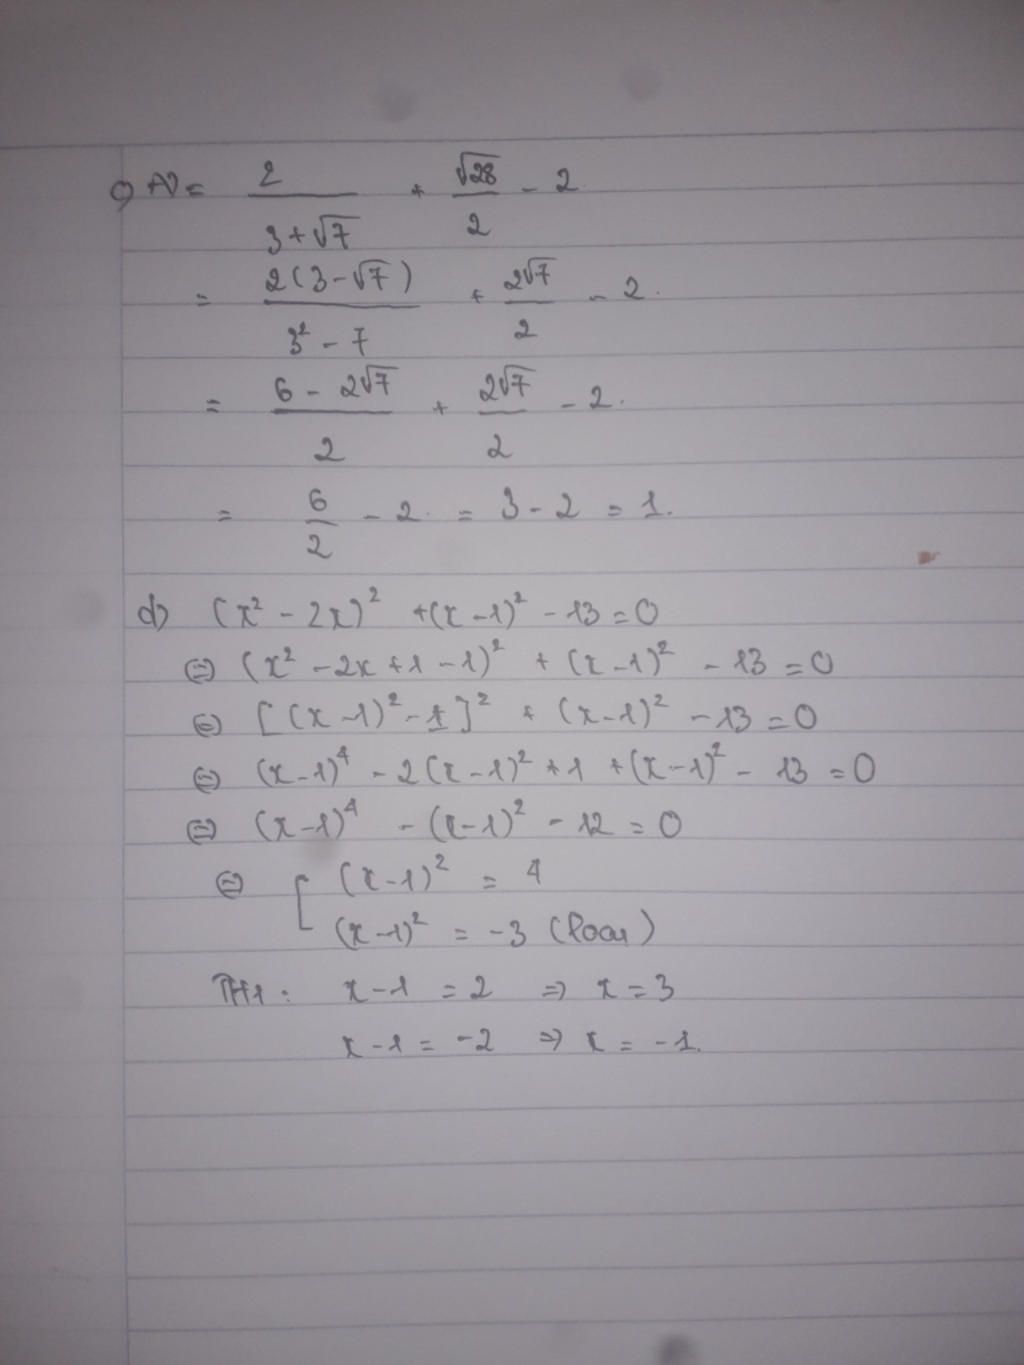 c) A) = 2/(3+√7) + √28/2 - 2
= 2(3-√7)/(3² - 7) + 2√7/2 - 2.
= (6 - 2√7)/2 + 2√7/2 - 2.
= 6/2 - 2. = 3 - 2 = 1.
d) (x² - 2x)² + (x - 1)² - 13 = 0
⇔ (x² - 2x + 1 - 1)² + (x - 1)² - 13 = 0
⇔ [(x - 1)² - 1]² + (x - 1)² - 13 = 0
⇔ (x - 1)⁴ - 2(x - 1)² + 1 + (x - 1)² - 13 = 0
⇔ (x - 1)⁴ - (x - 1)² - 12 = 0
⇔ [ (x - 1)² = 4
(x - 1)² = -3 (loại)
TH1: x - 1 = 2 ⇒ x = 3
x - 1 = -2 ⇒ x = -1.